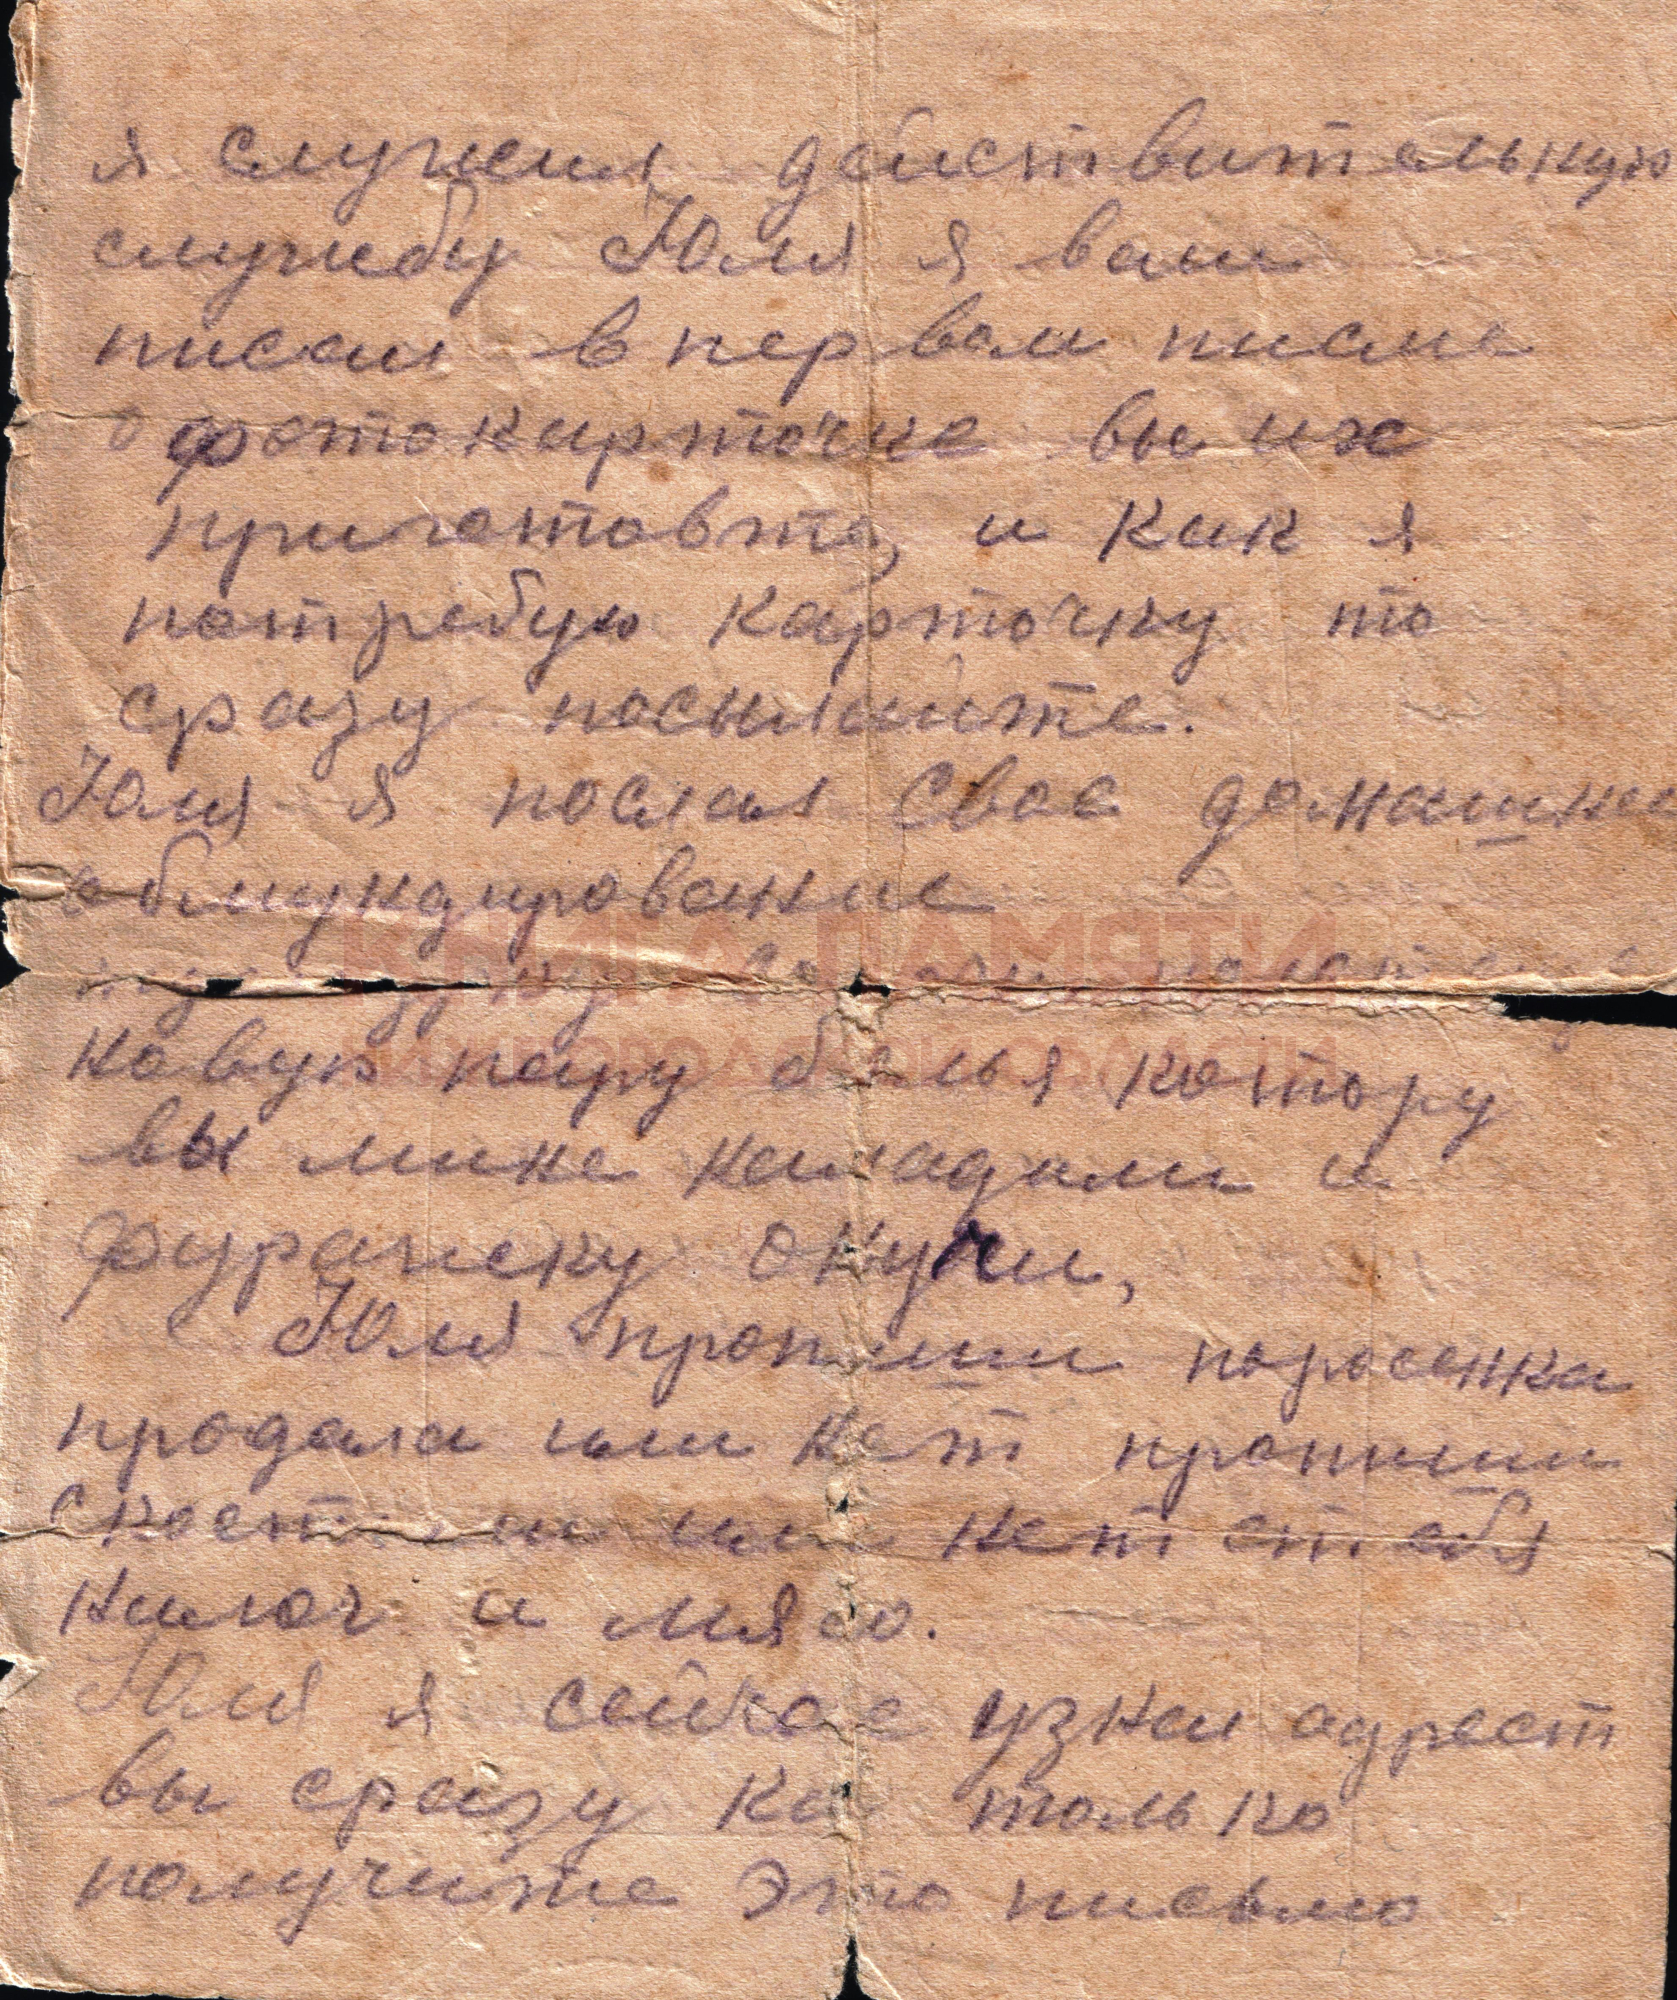 я служил действительную
службу Юля я вам
писал в первом письме
о фотокарточке вы их
приготовте, и как я
потребую карточку то
сразу посылайте.
Юля я послал свое домашнее
обмундирование
КНИГА ПАМЯТИ
новую пару белья котору
НИЖЕГОРОДСКОЙ ОБЛАСТИ
вы мине покладали и
фуражку онучи,
Юля пропиши поросенка
продала или нет пропиши
нет отебя
налог а мясо.
Юля я сейчас узнал адрест
вы сразу как только
получите это письмо